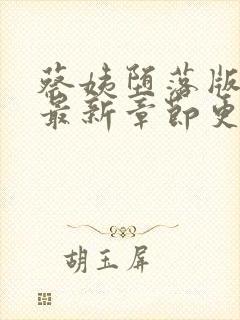 蔡姨堕落版
最新章节更
胡玉屏